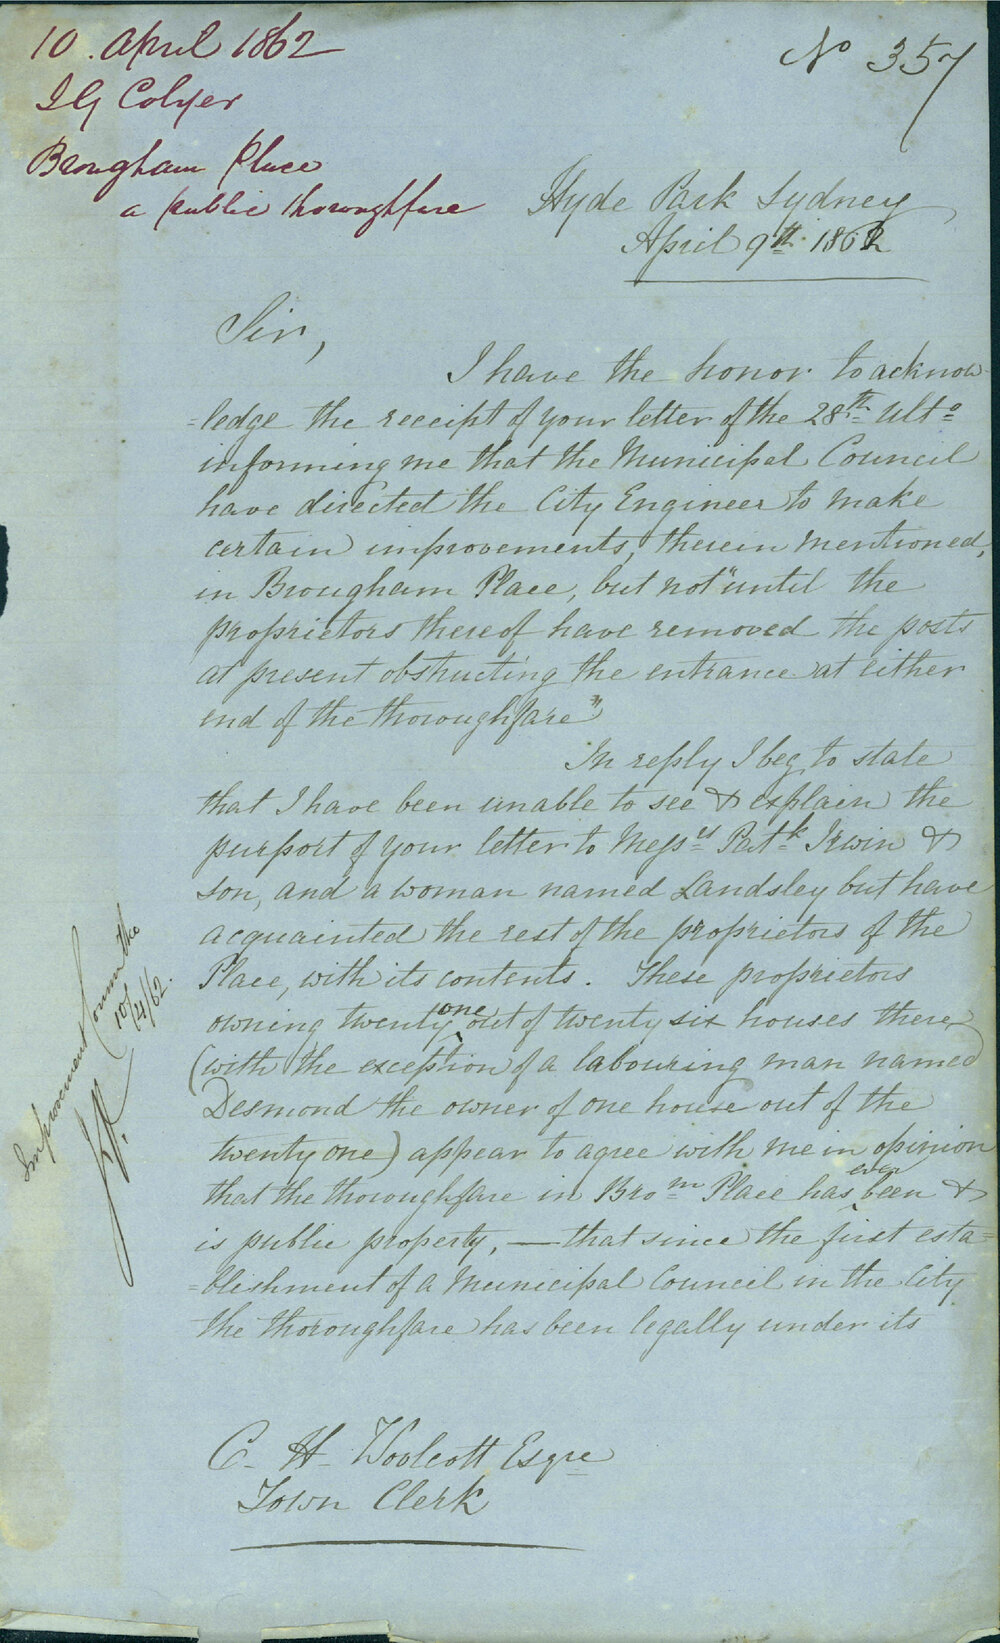 10. April 1862
J G Colyer
Brougham Place
a public thoroughfare
No 357
Hyde Park Sydney
April 9th 1862
Sir,
I have the honor to acknow-
=ledge the receipt of your letter of the 28th Ulto
informing me that the Municipal Council
have directed the City Engineer to make
certain improvements, therein mentioned,
in Brougham Place, but not "until the
proprietors thereof have removed the posts
at present obstructing the entrance at either
end of the thoroughfare"
In reply I beg to state
that I have been unable to see & explain the
purport of your letter to Messrs Patk Irwin &
son, and a woman named Landsley but have
acquainted the rest of the proprietors of the
Place, with its contents. These proprietors
owning twenty one out of twenty six houses there
(with the exception of a labouring man named
Desmond the owner of one house out of the
twenty one) appear to agree with me in opinion
that the thoroughfare in Brom Place has ever been &
is public property, — that since the first esta=
=blishment of a Municipal Council in the City
the thoroughfare has been legally under its
C. H. Woolcott Esqre
Town Clerk
Improvement Committee
10/4/62.